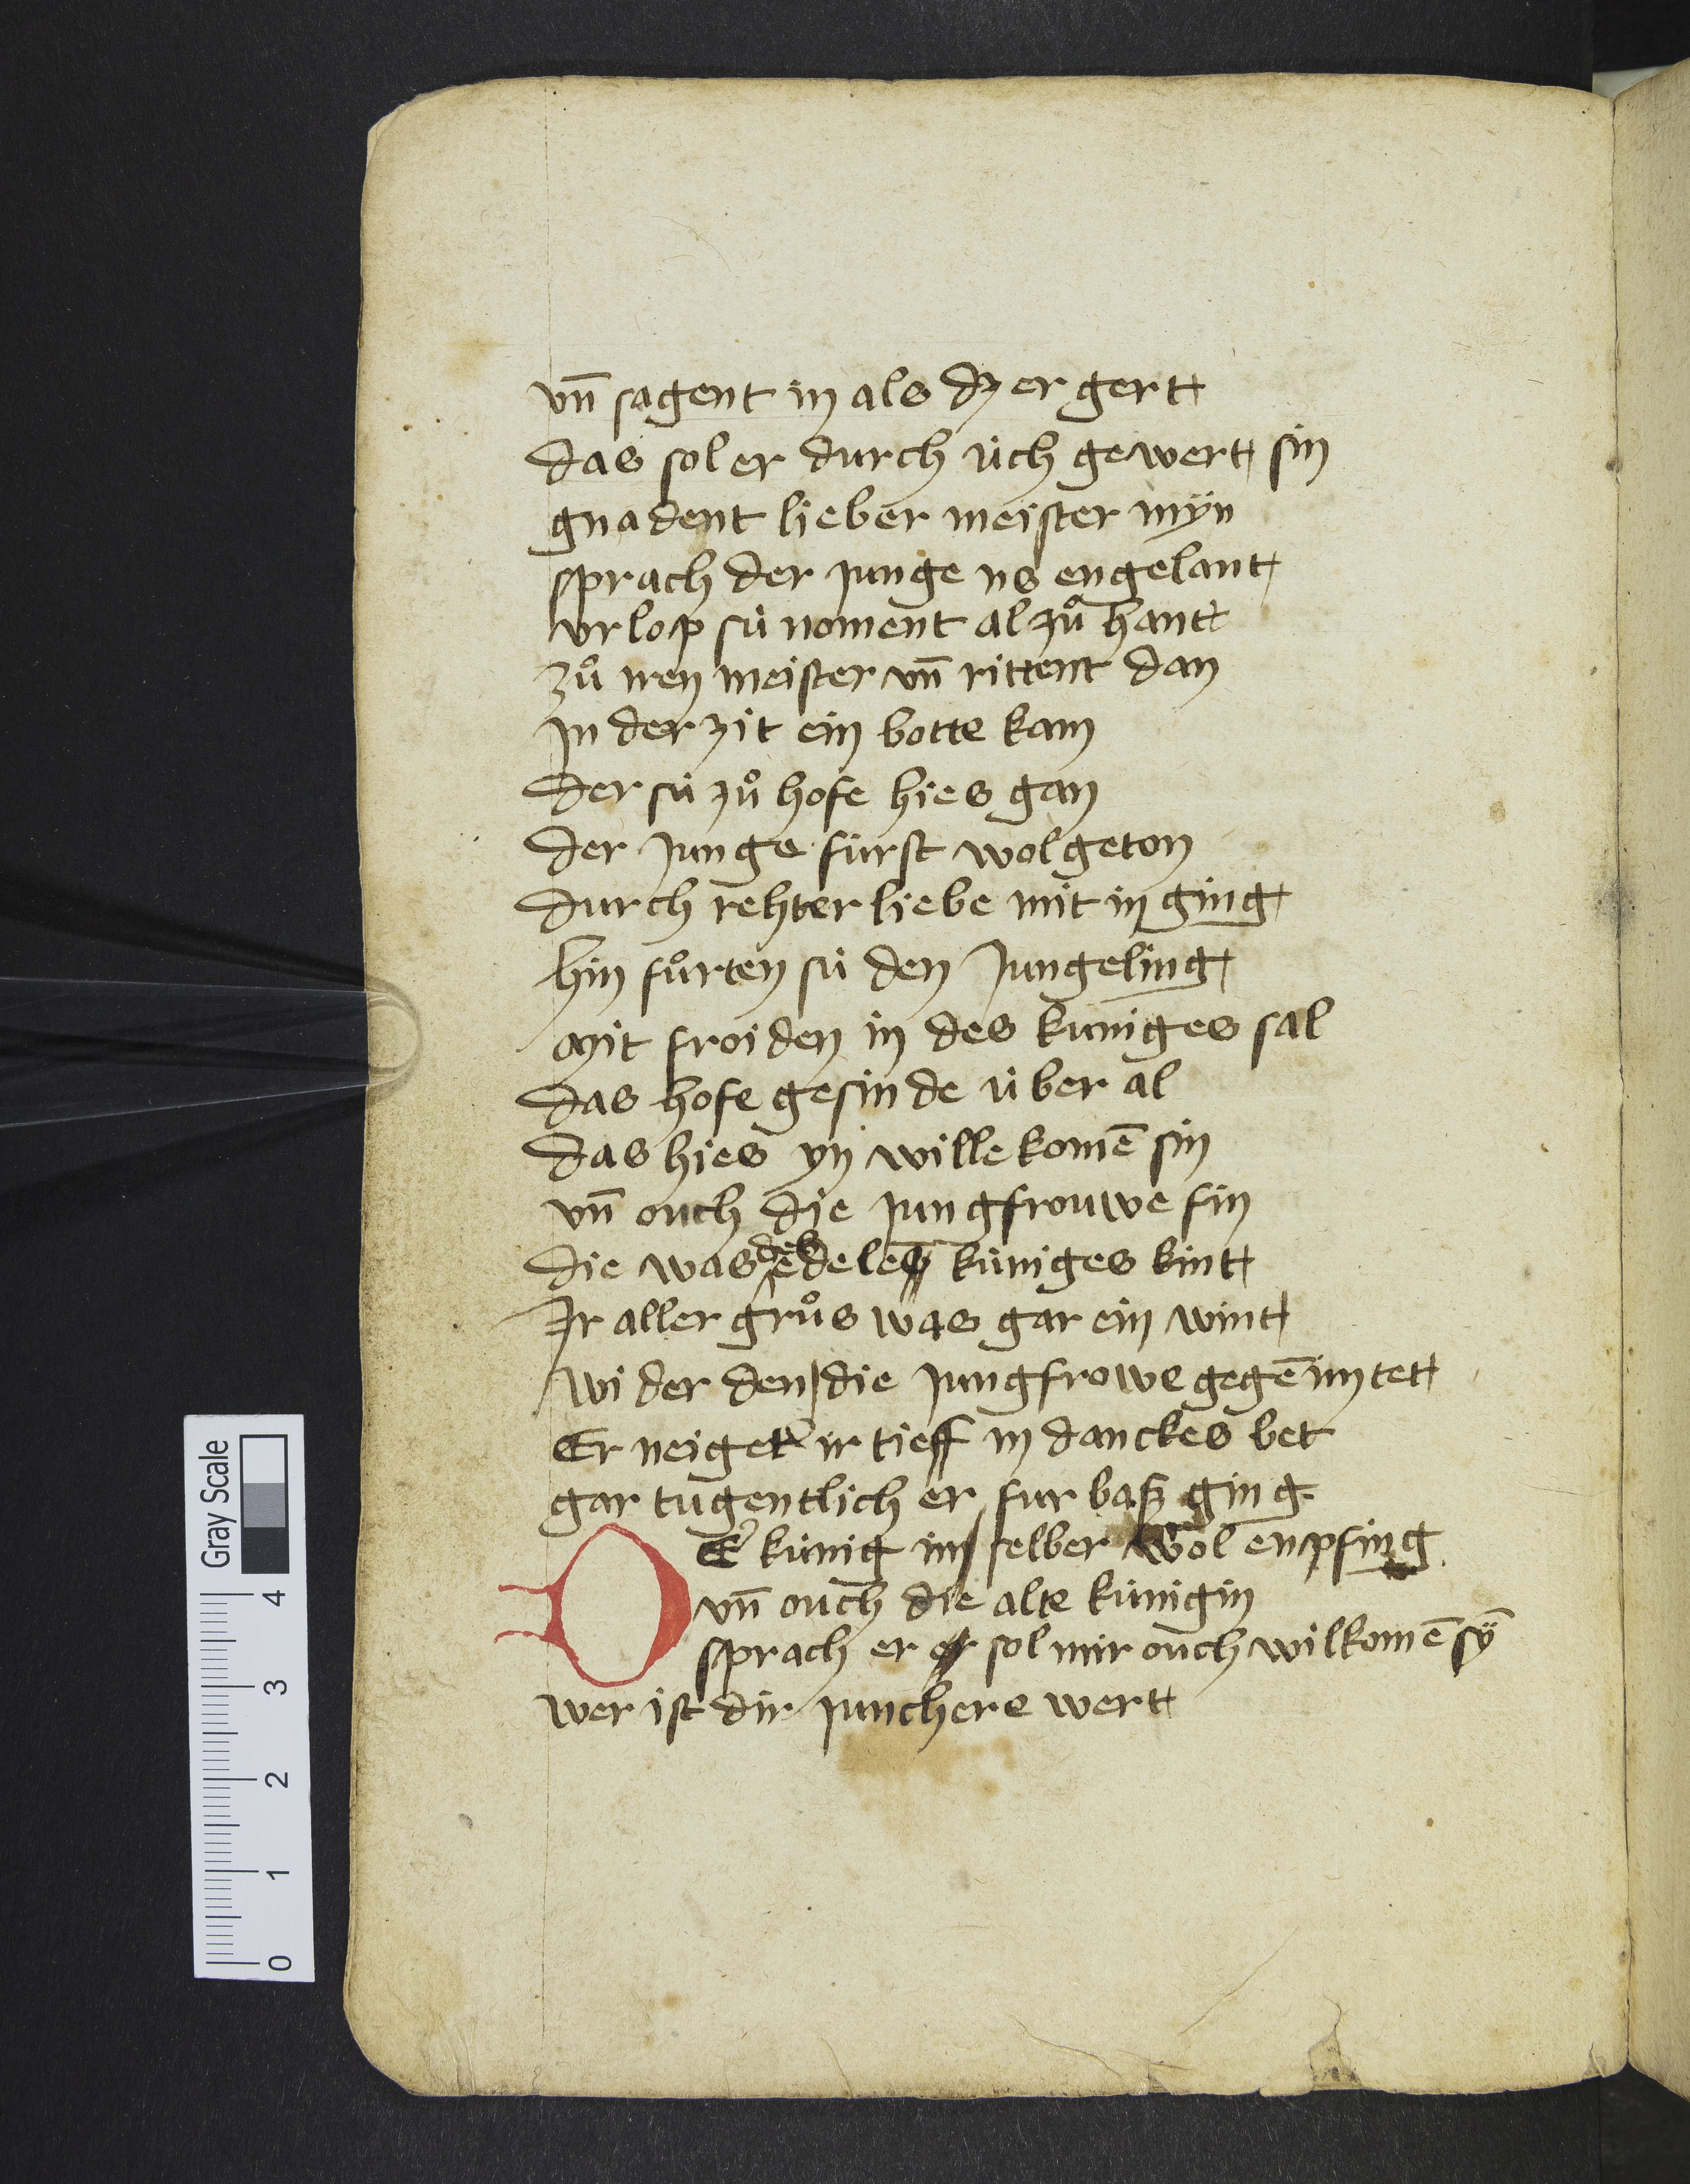 vn̄ sagent in als dz er gert
das sol er durch üch gewert sin
gnadent lieber meister mÿn
sprach der junge us engelant
vrlop sü noment al zuͦ hant
zuͦ iren meister vn̄ rittent dan
jn der zit ein botte kam
der sü zuͦ hofe hies gan
der junge fürst wolgeton
durch rehter liebe mit in ging
hin fuͦrten sü den jungeling
mit froiden in des kuniges sal
das hofe gesinde über al
das hies yn willekomē sin
vn̄ ouch die jungfrouwe fin
die was des edeles küniges kint
Ir aller gruͦs was gar ein wint
wider den die jungfrowe gegē im tet
Er neiget ir tieff in danckes bet
gar tugentlich er fur baß ging
DEr künig in selber wol enpfing
vn̄ ouch die alte künigin
sprach er er sol mir ouch wilkomē sÿ̄
wer ist dir junchere wert
Gray Scale
4
3
2
1
0